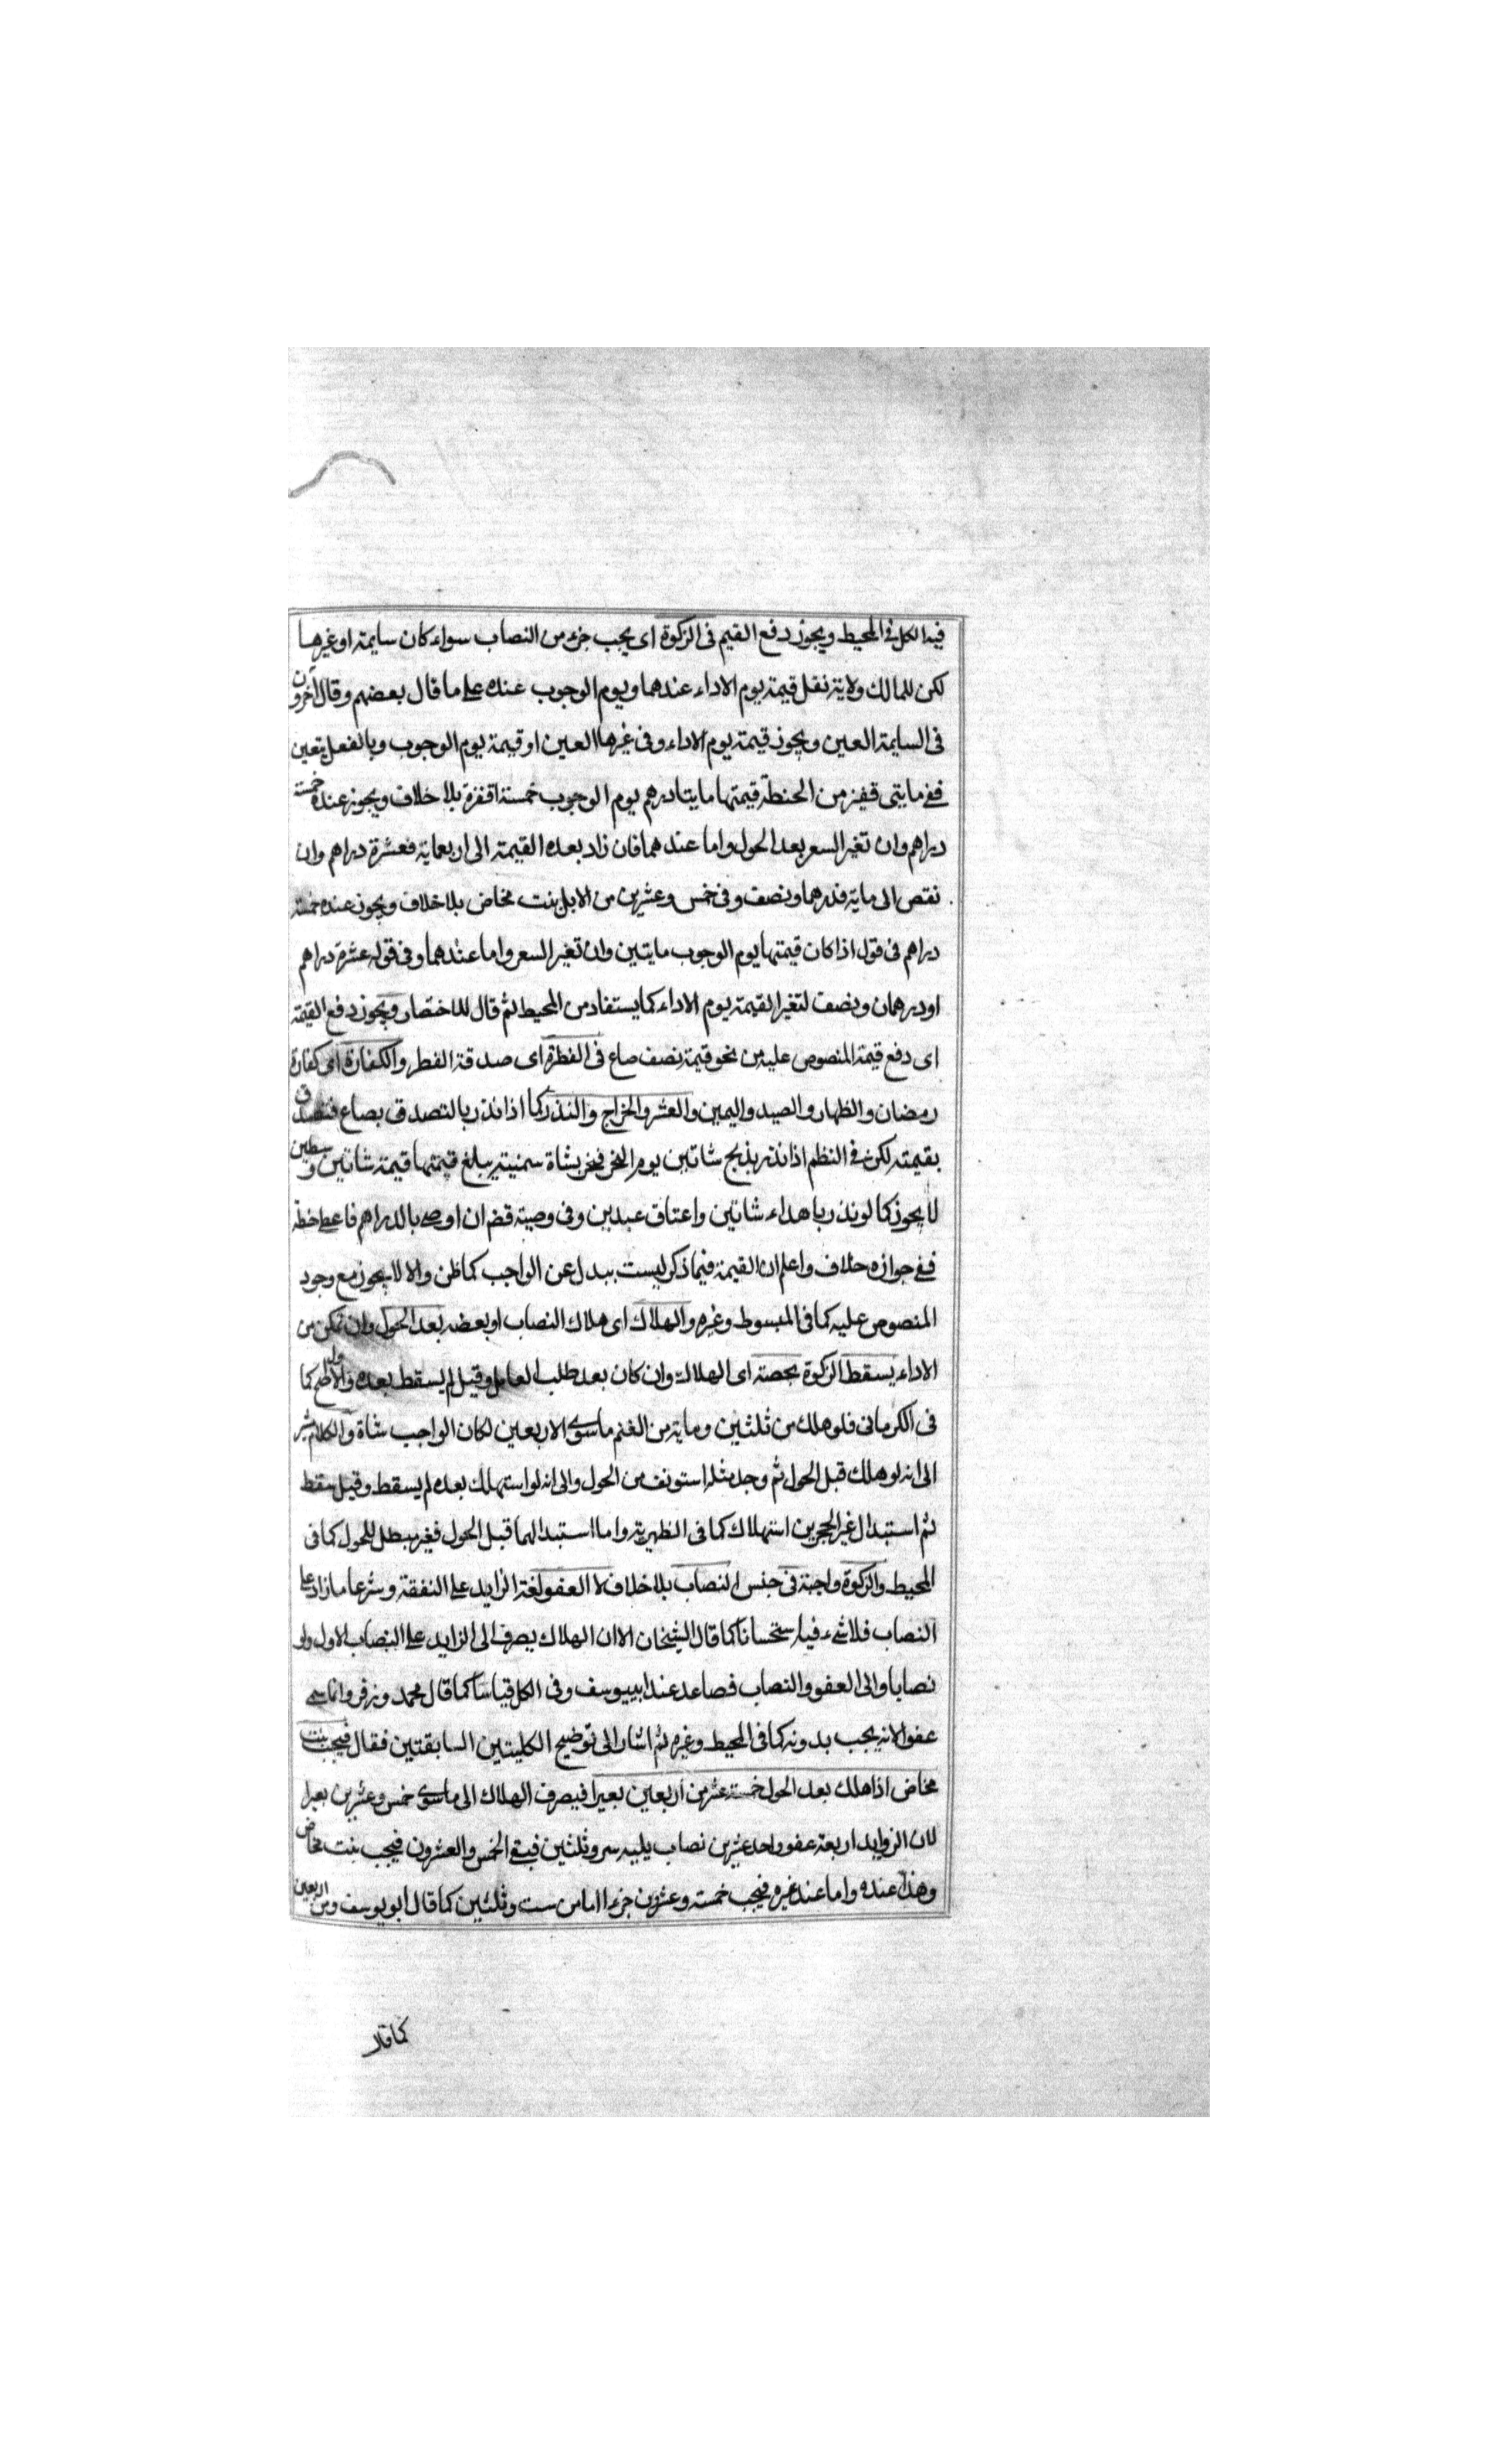 فيه الكل في المحيط ويجوز دفع القيم فى الزكوة اى يجب جزء من النصاب سواء كان سايمة او غيرها
لكن للمالك ولاية نقل قيمة يوم الاداء عندهما ويوم الوجوب عنده على ما قال بعضهم وقال آخرون
فى السايمة العين ويجوز قيمة يوم الاداء وفى غيرها العين او قيمة يوم الوجوب وبالفعل يتعين
ففى مايتى قفيز من الحنطة قيمتها مايتا درهم يوم الوجوب خمسة اقفزة بلا خلاف ويجوز عنده خمسة
دراهم وان تغير السعر بعد الحول واما عندهما فان زاد بعده القيمة الى اربعماية فعشرة دراهم وان
نقص الى ماية فدرهما ونصف وفى خمس وعشرين من الابل بنت مخاض بلا خلاف ويجوز عنده خمسة
دراهم فى قول اذا كان قيمتها يوم الوجوب مايتين وان تغير السعر واما عندهما وفى قوله عشرة دراهم
او درهمان ونصف لتغير القيمة يوم الاداء كما يستفاد من المحيط ثم قال للاختصار ويجوز دفع القيمة
اى دفع قيمة المنصوص عليه من نحو قيمة نصف صاع فى الفطرة اى صدقة الفطر والكفارة اى كفارة
رمضان والظهار والصيد واليمين والعشر والخراج والنذر كما اذا نذر بالتصدق بصاع فتصدق
بقيمته لكن فى النظم اذا نذر بذبح شاتين يوم النحر فنحر بشاة سمنية يبلغ قيمتها قيمة شاتين وسطين
لا يجوز كما لو نذر باهداء شاتين واعتاق عبدين وفى وصية قضم ان اوصى بالدراهم فاعطى حنطة
ففى جوازه خلاف واعلم ان القيمة فيما ذكر ليست ببدل عن الواجب كما ظن والا لا يجوز مع وجود
المنصوص عليه كما فى المبسوط وغيره والهلاك اى هلاك النصاب او بعضه بعد الحول وان تمكن من
الاداء يسقط الزكوة بحصته اى الهلاك وان كان بعد طلب العامل وقيل لم يسقط بعده والاول اصح كما
فى الكرمانى فلو هلك من ثلثين وماية من الغنم ما سوى الاربعين لكان الواجب شاة والكلام مشير
الى انه لو هلك قبل الحول ثم وجد مثله استونف من الحول والى انه لو استهلك بعده لم يسقط وقيل سقط
ثم استبدال غير الحجرين استهلاك كما فى الظهيرية واما استبدالهما قبل الحول فغير مبطل للحول كما فى
المحيط والزكوة واجبة فى جنس النصاب بلا خلاف لا العفو لغة الزايد على النفقة وشرعا ما زاد على
النصاب فلا شىء فيه استحسانا كما قال الشيخان الا ان الهلاك يصرف الى الزايد على النصاب الاول ولو
نصابا والى العفو والنصاب فصاعد عند ابييوسف وفى الكل قياسا كما قال محمد وزفر وانما سمى
عفوا لانه يجب بدونه كما فى المحيط وغيره ثم اشار الى توضيح الكليتين السابقتين فقال فيجب بنت
مخاض اذا هلك بعد الحول خمسة عشر من اربعين بعيرا فيصرف الهلاك الى ما سوى خمس وعشرين بعيرا
لان الزوايد اربعة عفو واحد عشر من نصاب يليه ست وثلثين فبقى الخمس والعشرون فيجب بنت مخاض
وهذا عنده واما عند غيره فيجب خمسة وعشرون جزءا اما من ست وثلثين كما قال ابو يوسف ومن اربعين
كما قال